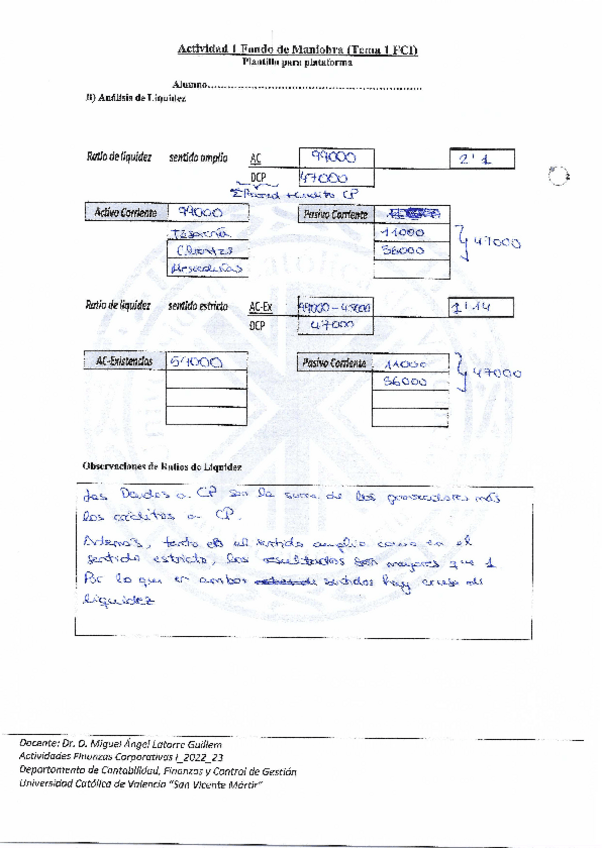 Actividad 1 Fondo de Maniobra (Tema 1 FCI)
Plantilla para plataforma
Alumno
B) Análisis de Liquidez
Ratio de liquidez sentido amplio AC 99000 2'1
DCP 47000
ΣProved + crédito CP
Activo Corriente 99000 Pasivo Corriente
Tesorería 11000
Clientes 36000 47000
Mercaderías
Ratio de liquidez sentido estricto AC-Ex 99000-45000 1'14
DCP 47000
AC-Existencias 54000 Pasivo Corriente 11000
36000 47000
Observaciones de Ratios de Liquidez
Las Deudas a CP son la suma de los proveedores más
los créditos a CP.
Además, tanto en el sentido amplio como en el
sentido estricto, los resultados son mayores que 1
Por lo que en ambos sentidos hay exceso de
liquidez
Docente: Dr. D. Miguel Ángel Latorre Guillem
Actividades Finanzas Corporativas I_2022_23
Departamento de Contabilidad, Finanzas y Control de Gestión
Universidad Católica de Valencia "San Vicente Mártir"